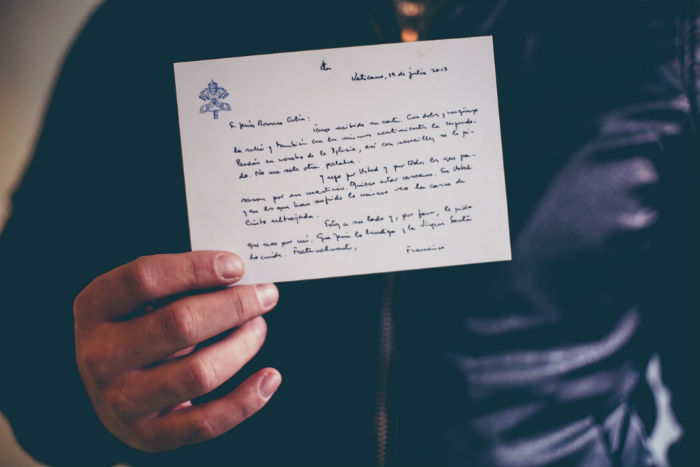 Vaticano, 19 de julio 2013
S. Jesús Romero Colín:
recibido su carta. Con dolor y vergüenza
la releí y también con los mismos sentimientos la respondo.
Perdón en nombre de la Iglesia, así con sencillez se lo pi-
do. No me sale otra palabra.
Y rezo por Usted y por todos los que pa-
saron por ese martirio. Quiero estar cercano. En Usted
y en los que han sufrido lo mismo veo la carne de
Cristo ultrajada.
Estoy a su lado y, por favor, le pido
que rece por mí. Que Jesús lo bendiga y la Virgen Santa
lo cuide. Fraternalmente, Francisco